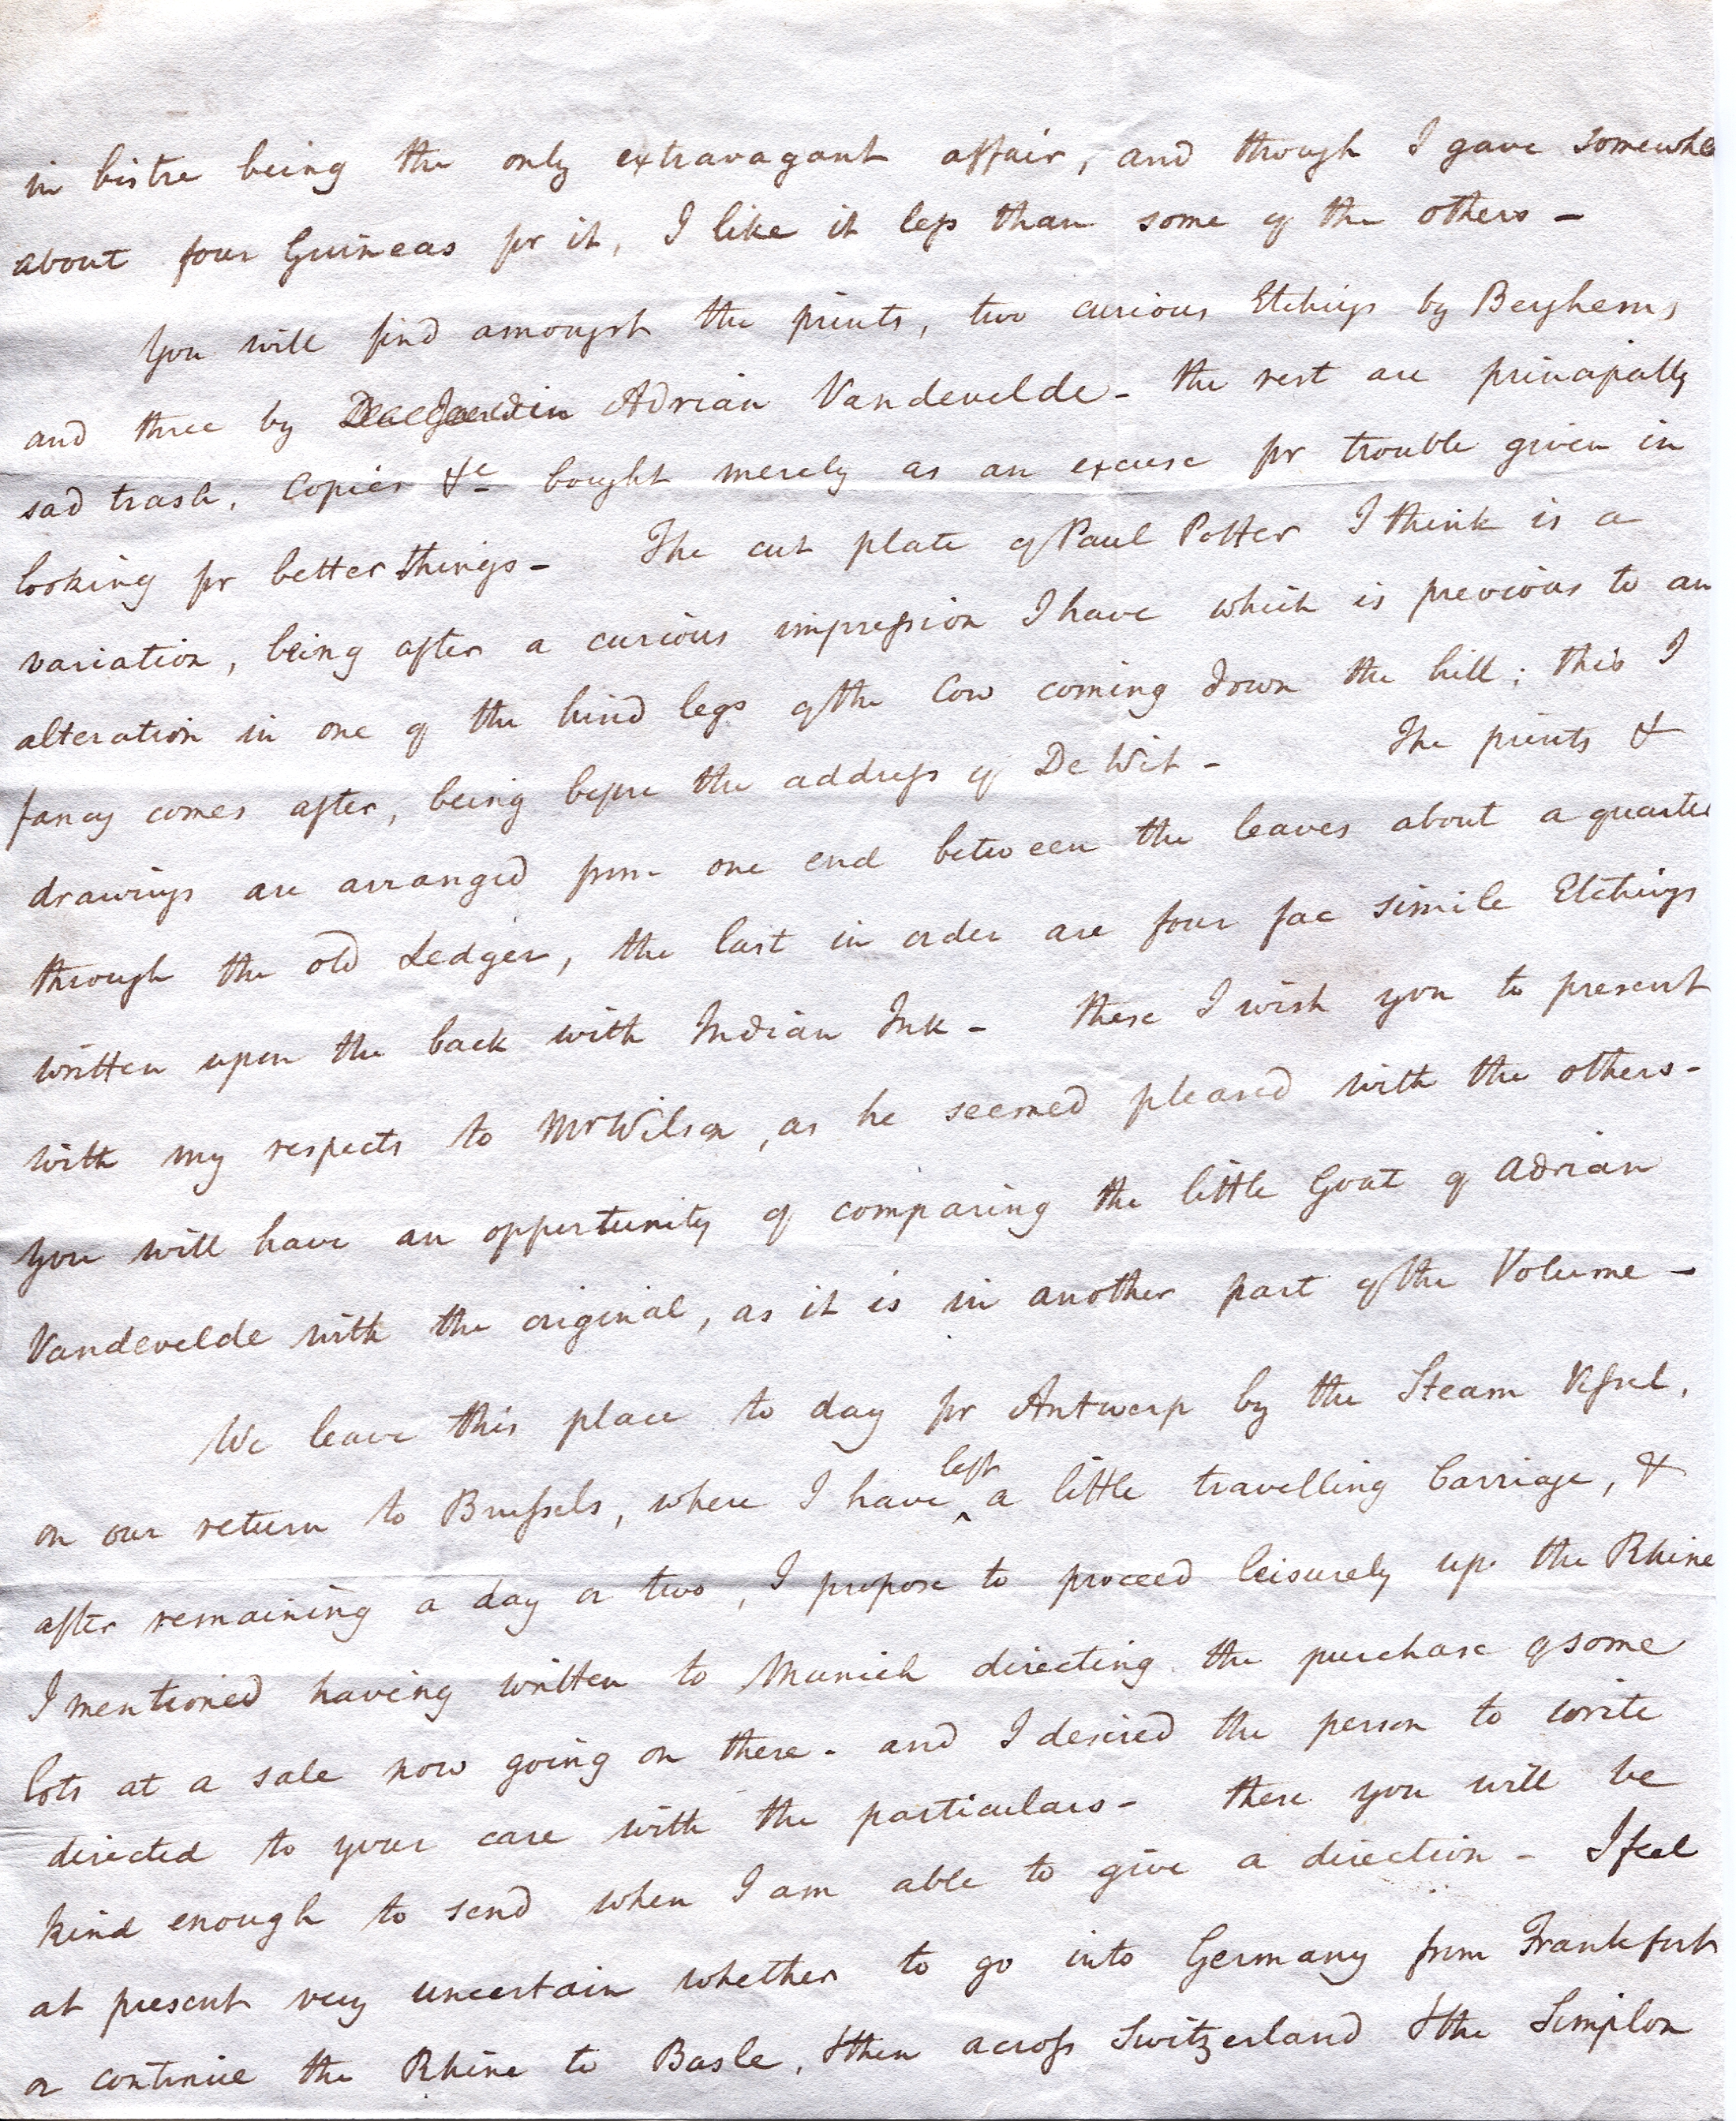 in bistre being the only extravagant affair, and though I gave somewhe
about four Guineas for it, I like it less than some of the others –
You will find amongst the prints, two curious Etchings by Berghems
and three by Adrian Vandevelde – the rest are principally
sad trash, Copies &c bought merely as an excuse for trouble given in
looking for better things – The cut plate of Paul Potter I think is a
variation, being after a curious impression I have which is previous to an
alteration in one of the hind legs of the Cow coming down the hill; this I
fancy comes after, being before the address of De Wit – The prints &
drawings are arranged from one end between the leaves about a quarter
through the old Ledger, the last in order are four fac simile Etchings
written upon the back with Indian Ink – these I wish you to present
with my respects to Mr Wilson, as he seemed pleased with the others –
You will have an oppertunity of comparing the little Goat of Adrian
Vandevelde with the original, as it is in another part of the Volume –
We leave this place to day for Antwerp by the Steam Vessel,
on our return to Brussels, where I have left a little travelling Carriage, &
after remaining a day or two, I propose to proceed leisurely up the Rhine
I mentioned having written to Munich directing the purchase of some
lots at a sale now going on there – and I desired the person to write
directed to your care with the particulars – these you will be
kind enough to send when I am able to give a direction – I feel
at present very uncertain whether to go into Germany from Frankfort
or continue the Rhine to Basle, & then across Switzerland & the Simplon